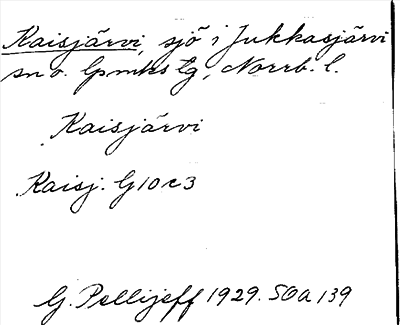 Kaisjärvi, sjö i Jukkasjärvi
sn o. lpmks tg, Norrb. l.
Kaisjärvi
Kaisj. G10c3
G. Pellijeff 1929. SOA 139